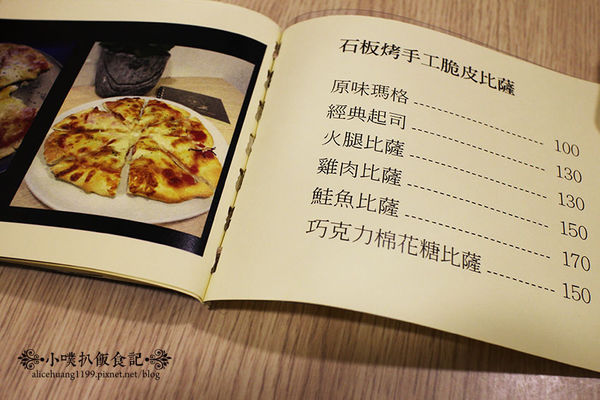 石板烤手工脆皮比薩
原味瑪格 100
經典起司 130
火腿比薩 130
雞肉比薩 150
鮭魚比薩 170
巧克力棉花糖比薩 150
小噗扒飯食記
alicehuang1199.pixnet.net/blog